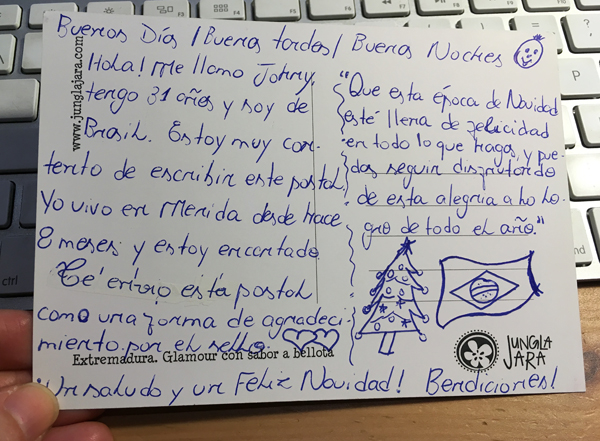 Buenos Días / Buena tardes / Buena Noches
www.junglajara.com
Hola! Me llamo Johny,
tengo 31 años y soy de
Brasil. Estoy muy con-
tento de escribir este postal.
Yo vivo en Merida desde hace
8 meses y estoy encantado.
Te envio está postal
como una forma de agradeci-
miento por el sello.
Extremadura. Glamour con sabor a bellota
"Que esta época de Navidad
esté llena de felicidad
en todo lo que hagas, y pue-
das seguir disfrutando
de esta alegria a ho lo-
gro de todo el año."
JUNGLA
JARA
Un saludo y un Feliz Navidad! Bendiciones!
ctrl